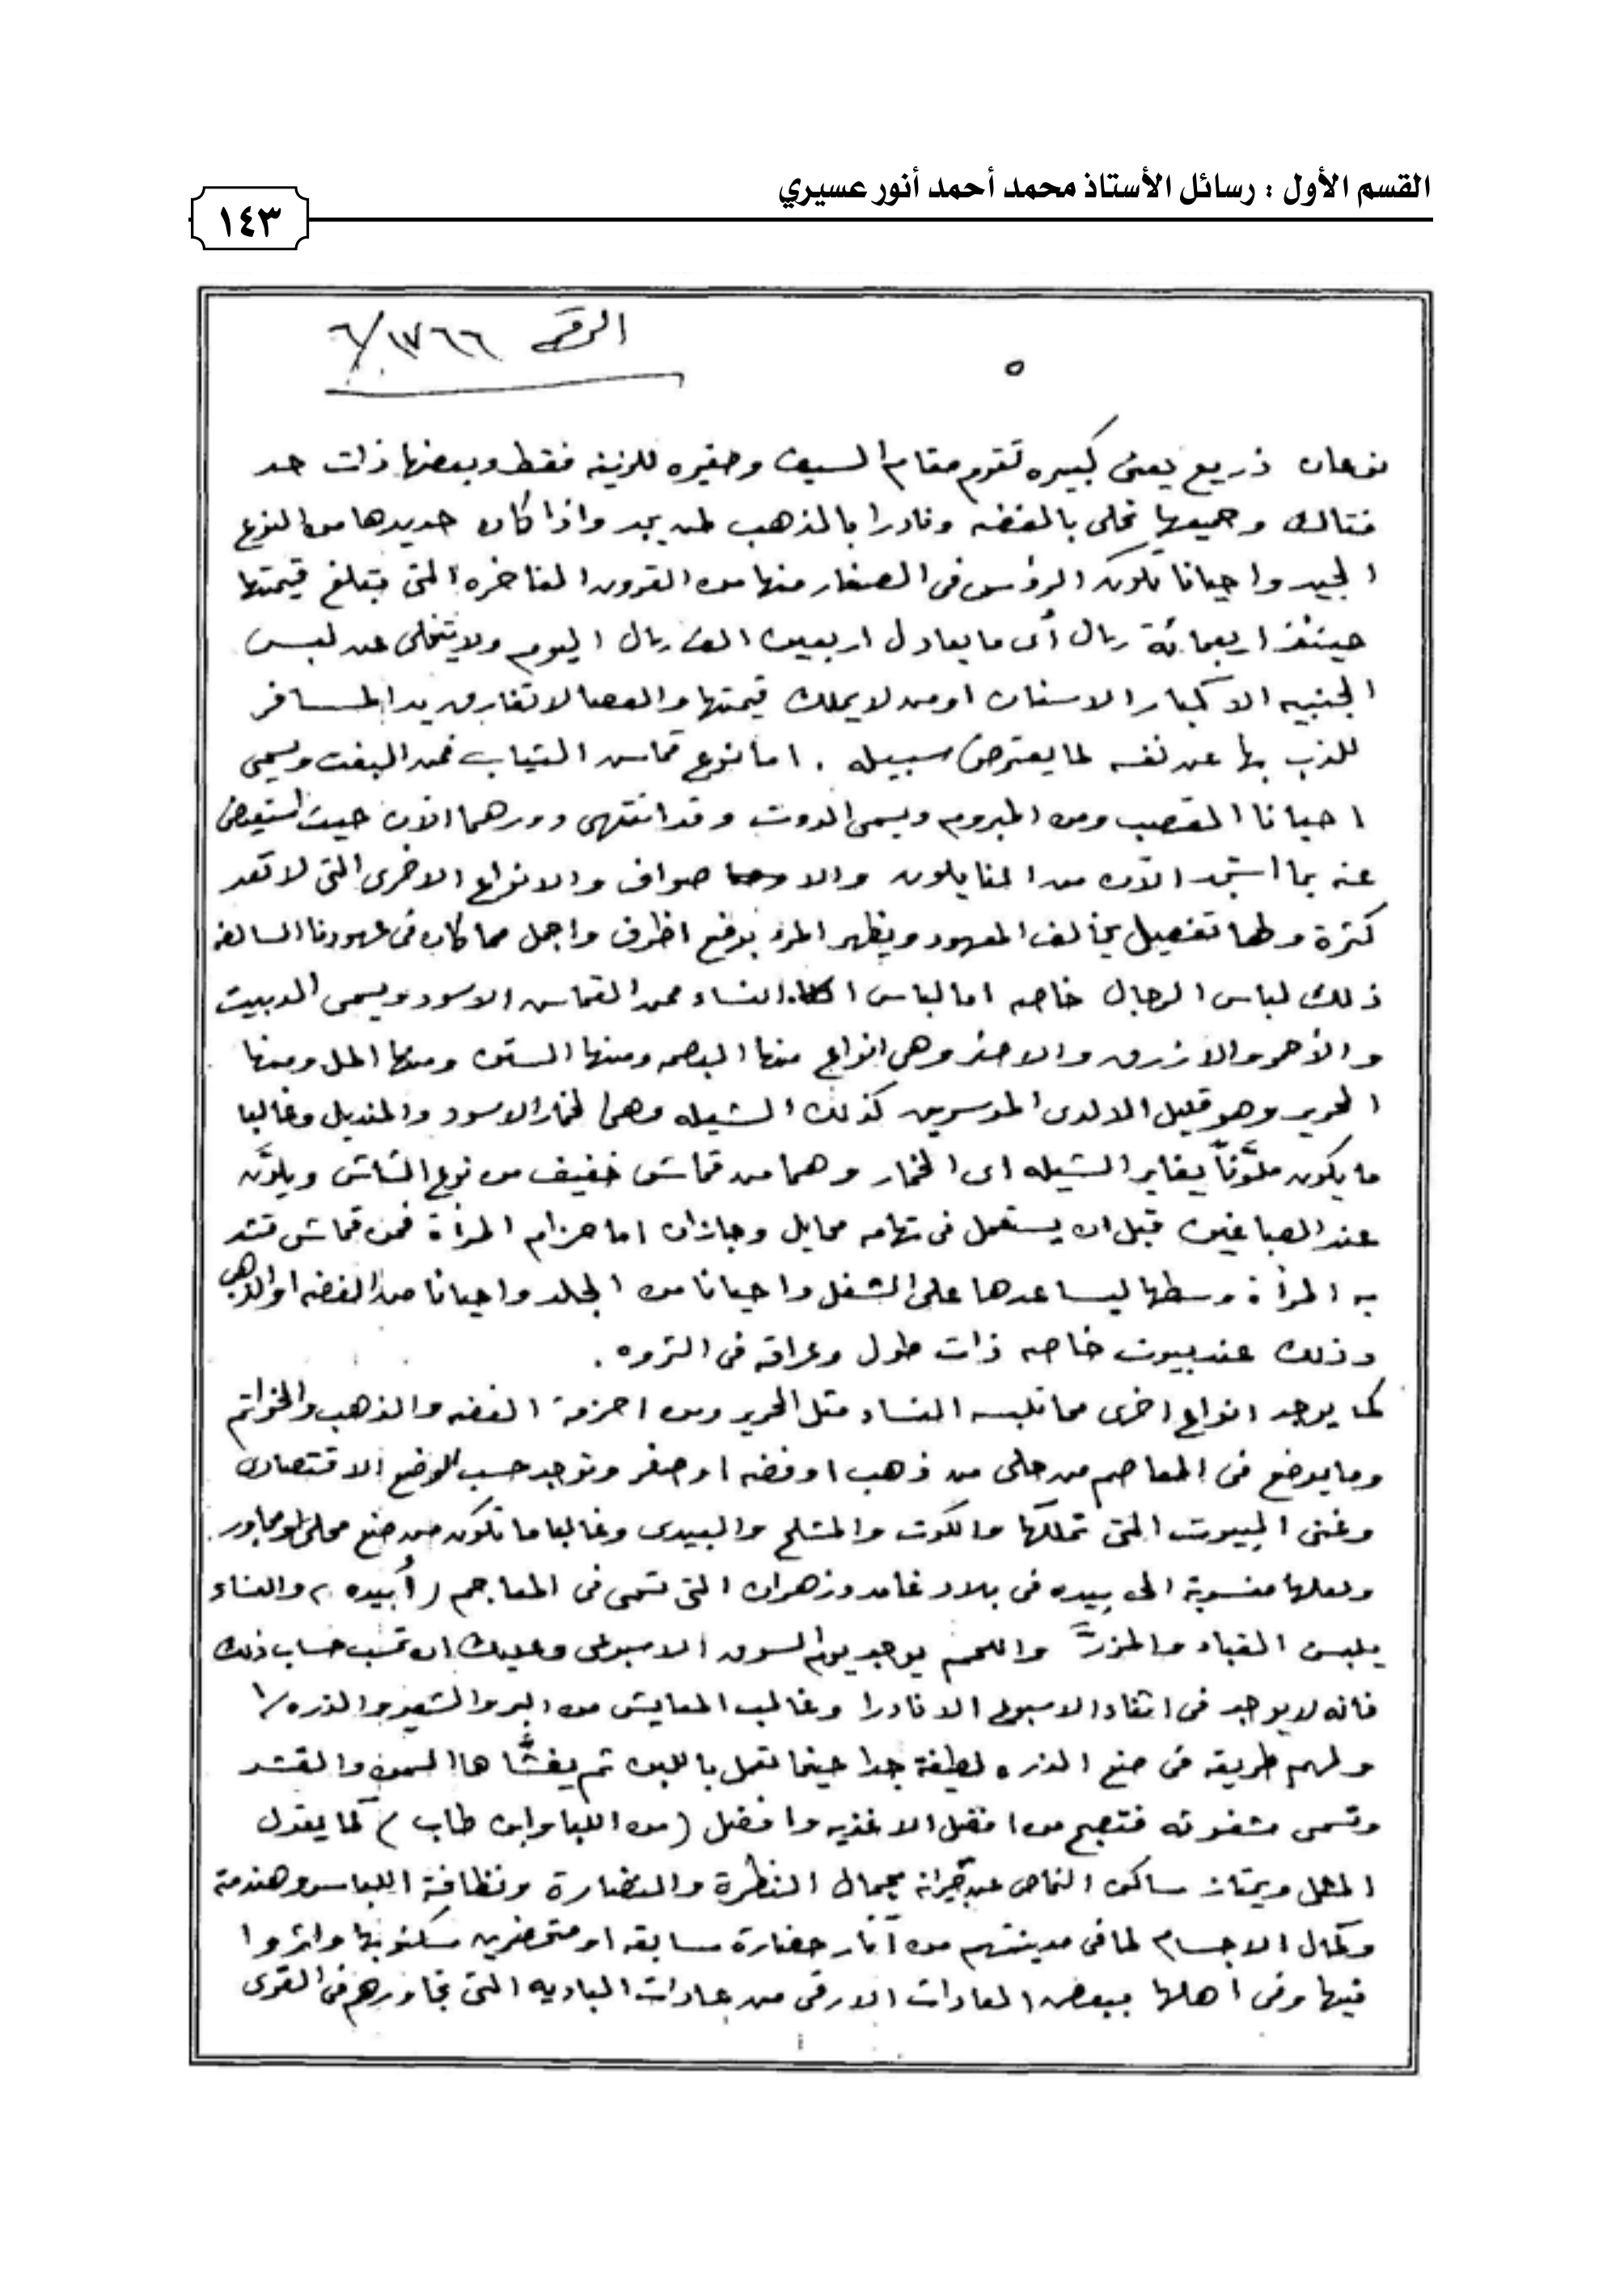 القسم الأول : رسائل الأستاذ محمد أحمد أنور عسيري
١٤٣
الرقم ٦/١٧٦٦
٥
نوعان ذريع يعنى كبيره تقوم مقام السيف وصغيره للزينه فقط وبعضها ذات حد
فتاك وجميعها تحلى بالفضه ونادرا بالذهب لمن يجد واذا كان حديدها من النوع
الجيد واحيانا تكون الرؤس فى الصغار منها من القرون الفاخره التى تبلغ قيمتها
حينئذ اربعمائة ريال أى ما يعادل اربعين الف ريال اليوم ولا يتخلى عن لبس
الجنبيه الا كبار الاسنان او من لا يملك قيمتها والعصا لا تفارق يد المسافر
للذب بها عن نفسه لما يعترض سبيله . اما نوع قماس الثياب فمن البفت ويسمى
احيانا المقصب ومن المبروم ويسمى الدوت وقد انتهى دورهما الان حيث استيعض
عنه بما استجد الآن من النايلون والاصواف والانواع الاخرى التى لا تعد
كثرة ولها تفصيل يخالف المعهود ويظهر المرء بوضع اظرف واجمل مما كان فى عهودنا السالفه
ذلك لباس الرجال خاصه اما لباس النساء فمن القماس الاسود ويسمى الدبيت
والأحمر والازرق والاخضر وهى انواع منها البصمه ومنها الستن ومنها المل ومنها
الحرير وهو قليل الا لدى الموسرين كذلك الشيله وهى الخمار الاسود والمنديل وغالبا
ما يكون ملوّناً يغاير الشيله اى الخمار وهما من قماش خفيف من نوع الشاش ويلوّن
عند الصباغين قبل ان يستعمل فى تهامه محايل وجازان اما حزام المرأة فمن قماش تشد
به المرأة وسطها ليساعدها على الشغل واحيانا من الجلد واحيانا من الفضه او الذهب
وذلك عند بيوت خاصه ذات طول وعراقه فى الثروه .
كما يوجد انواع اخرى مما تلبسه النساء مثل الحرير ومن احزمة الفضه والذهب والخواتم
وما يوضع فى المعاصم من حلى من ذهب او فضه او صفر وتوجد حسب الوضع الاقتصادى
وغنى البيوت التى تملكها والكوت والمشلح والبيدى وغالبا ما تكون من صنع محلى او مجاور
ولعلها منسوبة الى بيده فى بلاد غامد وزهران التى تسمى فى المعاجم ( أبيده ) والنساء
يلبس القباء والمزرّ واللحم يوجد يوم السوق الاسبوعى وعليك ان تحسب حساب ذلك
فانه لا يوجد فى اثناء الاسبوع الا نادرا وغالب المعايش من البر والشعير والذره /١
ولهم طريقه فى صنع الذره لطيفة جدا حينما تعمل باللبن ثم يغشّاها السمن والقشد
وتسمى مشغوثه فتصبح من افضل الاغذيه وافضل ( من اللبا وابن طاب ) كما يقول
المثل ويمتاز ساكن النماص عن جيرانه بجمال النظرة والنضارة ونظافة اللباس وهندمة
وكمال الاجسام لما فى مدينتهم من آثار حضارة سابقه او متحضرين سكنو بها واثروا
فيها وفى اهلها ببعض العادات الارقى من عادات الباديه التى تجاورهم فى القرى